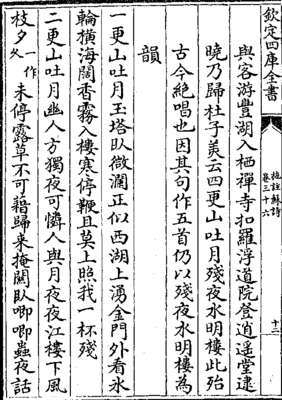 欽定四庫全書
施註蘇詩
卷三十六
十二
與客游豐湖入栖禪寺扣羅浮道院登逍遥堂逮
曉乃歸杜子美云四更山吐月殘夜水明樓此殆
古今絶唱也因其句作五首仍以殘夜水明樓為
韻
一更山吐月玉塔臥微瀾正似西湖上湧金門外看氷
輪横海闊香霧入樓寒停鞭且莫上照我一杯殘
二更山吐月幽人方獨夜可憐人與月夜夜江樓下風
枝夕一作久未停露草不可藉歸来掩關臥唧唧蟲夜話